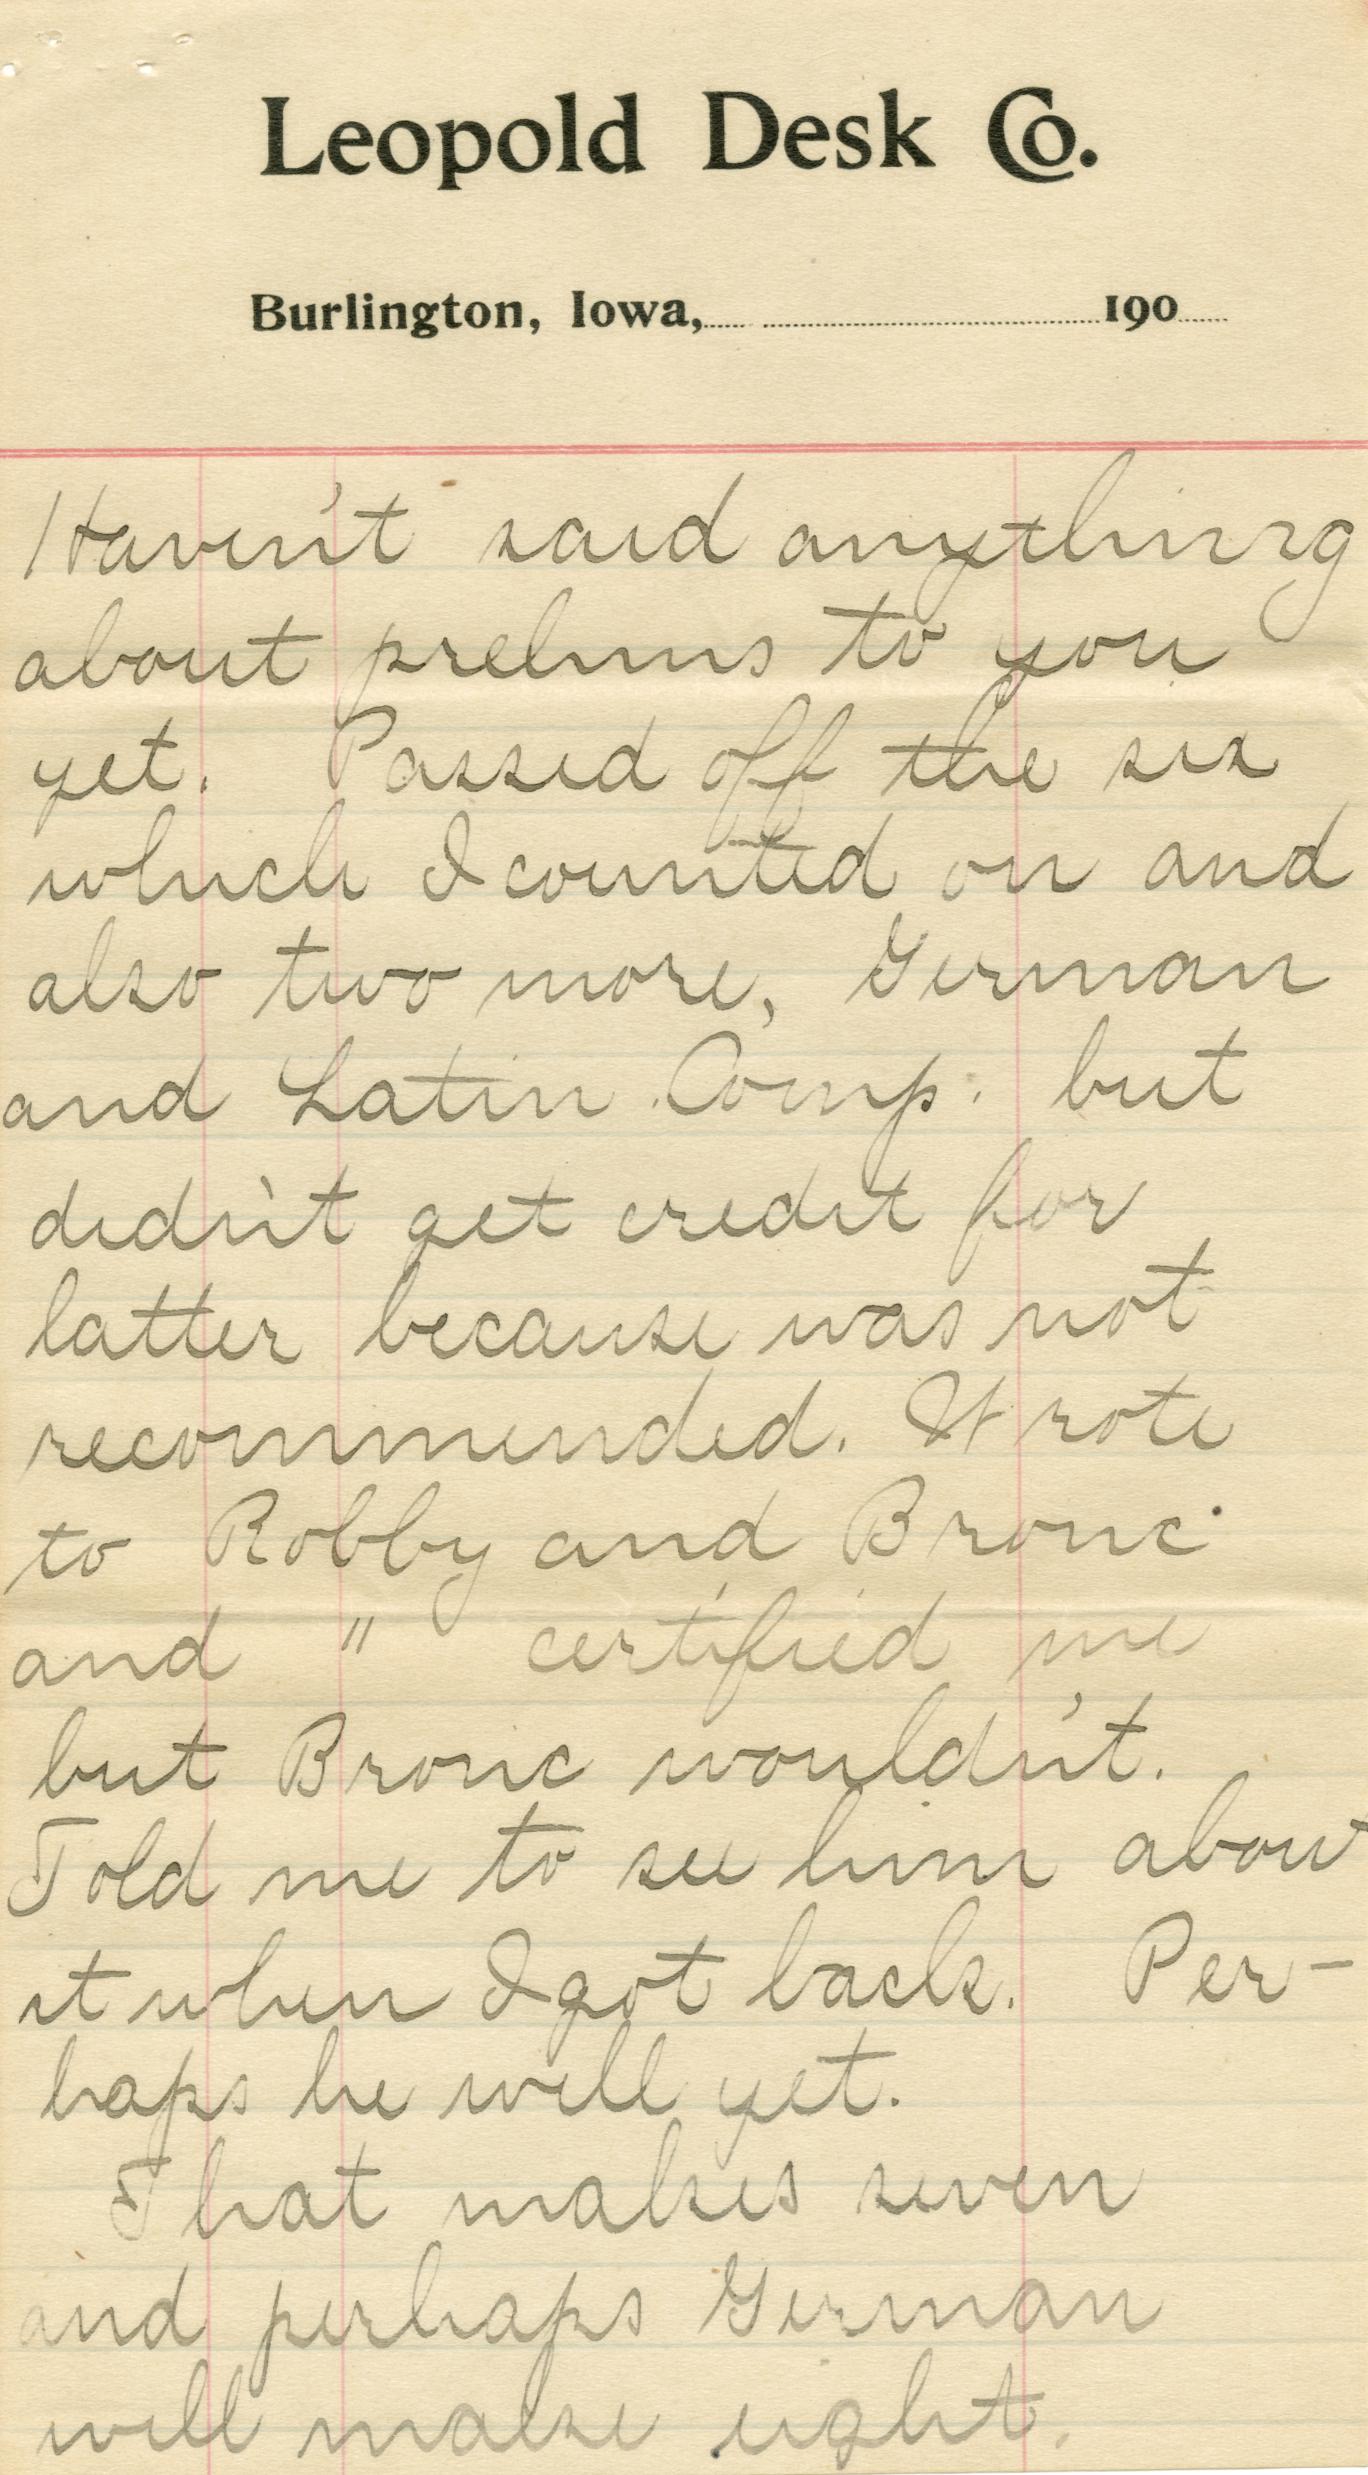 Leopold Desk Co.
Burlington, Iowa, 190
Haven't said anything
about prelims to you
yet. Passed off the six
which I counted on and
also two more, German
and Latin Comp. but
didn't get credit for
latter because was not
recommended. Wrote
to Robby and Bronc
and " certified me
but Bronc wouldn't.
Told me to see him about
it when I got back. Per-
haps he will yet.
That makes seven
and perhaps German
will make eight.